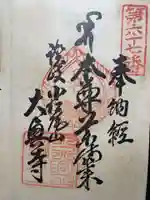 第六十七番
奉納経
本尊薬師如来
小松尾山
大興寺